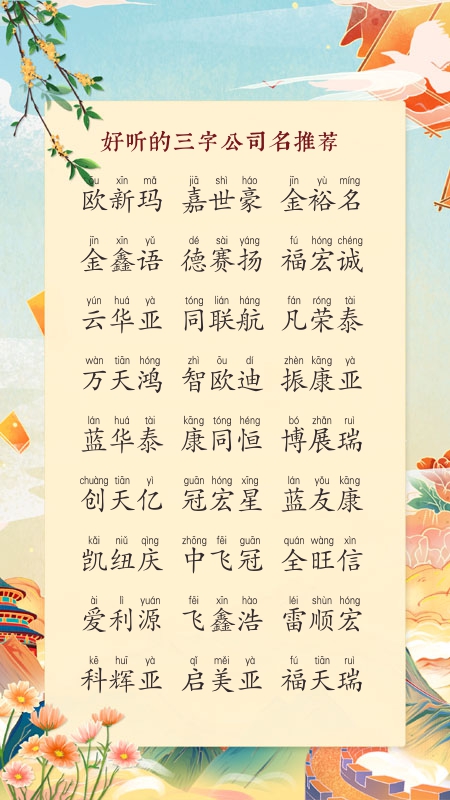 好听的三字公司名推荐
ōu xīn mǎ jiā shì háo jīn yù míng
欧新玛 嘉世豪 金裕名
jīn xīn yǔ dé sài yáng fú hóng chéng
金鑫语 德赛扬 福宏诚
yún huá yà tóng lián háng fán róng tài
云华亚 同联航 凡荣泰
wàn tiān hóng zhì ōu dí zhèn kāng yà
万天鸿 智欧迪 振康亚
lán huá tài kāng tóng héng bó zhǎn ruì
蓝华泰 康同恒 博展瑞
chuàng tiān yì guān hóng xīng lán yǒu kāng
创天亿 冠宏星 蓝友康
kǎi niǔ qìng zhōng fēi guān quán wàng xìn
凯纽庆 中飞冠 全旺信
ài lì yuán fēi xīn hào léi shùn hóng
爱利源 飞鑫浩 雷顺宏
kē huī yà qǐ měi yà fú tiān ruì
科辉亚 启美亚 福天瑞